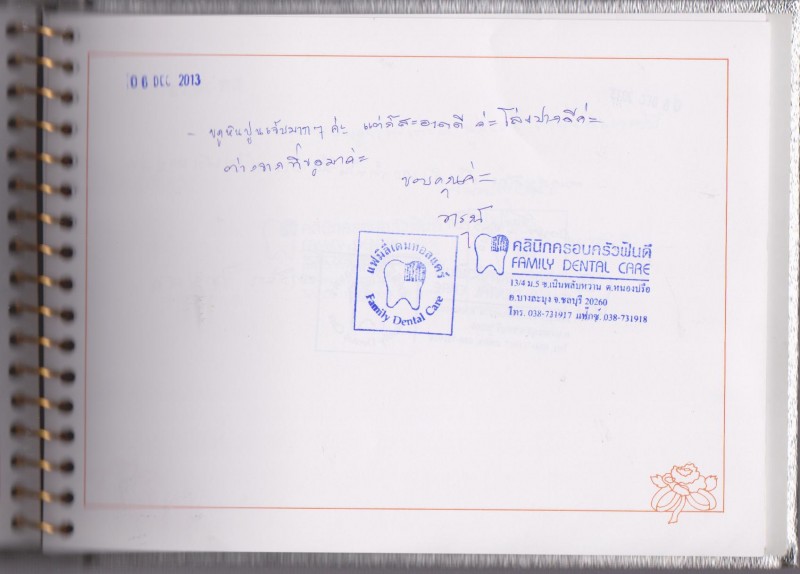 06 DEC 2013
- ขูดหินปูนเจ็บมากๆ ค่ะ แต่ก็สะอาดดี ค่ะ โล่งปากดีค่ะ
ต่างจากที่
ขอบคุณค่ะ
แฟมิลี่เดนทอลแคร์
Family Dental Care
คลินิกครอบครัวฟันดี
FAMILY DENTAL CARE
13/4 ม.5 ซ.เนินพลับหวาน ต.หนองปรือ
อ.บางละมุง จ.ชลบุรี 20260
โทร. 038-731917 แฟ็กซ์. 038-731918